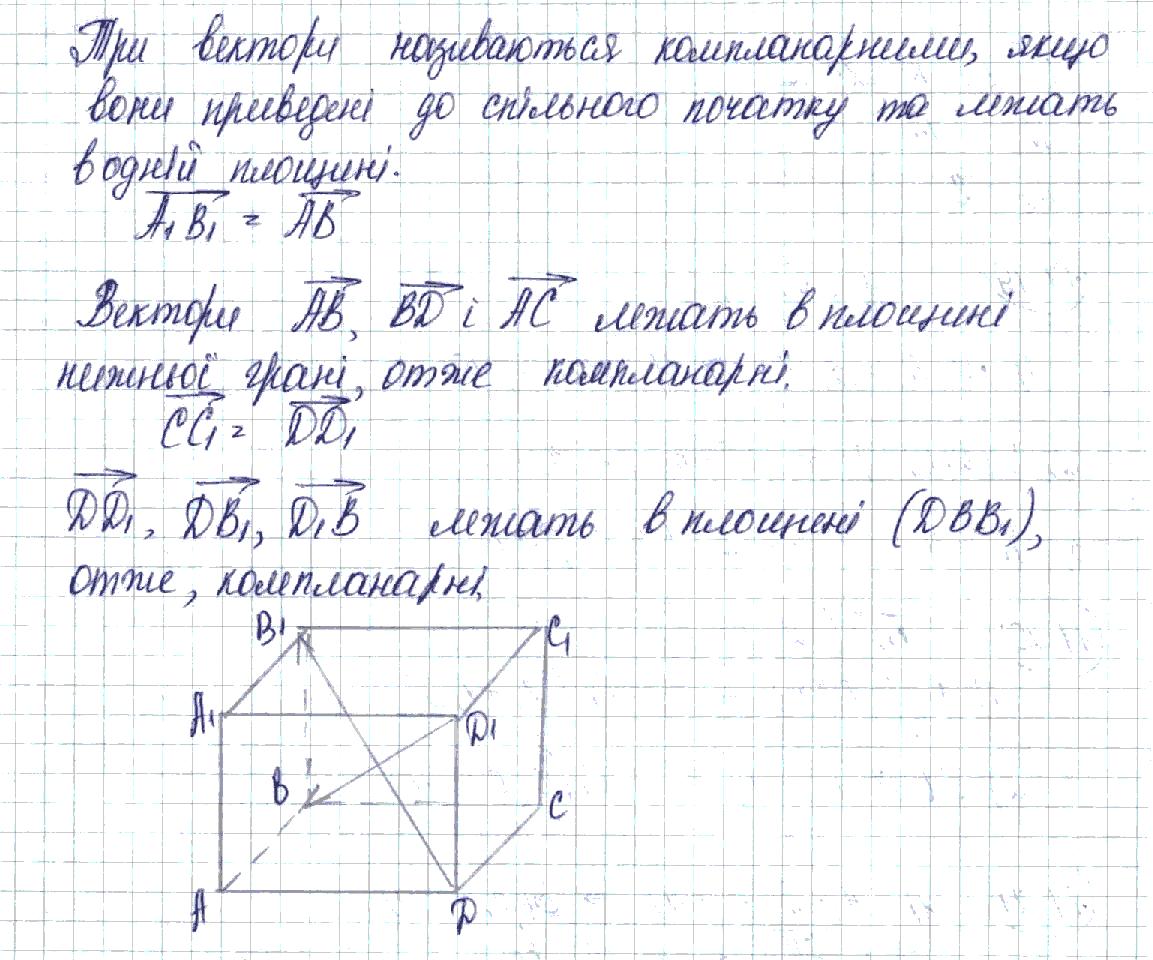 Три вектори називаються компланарними, якщо
вони приведені до спільного початку та лежать
в одній площині.
A₁B₁ = AB
Вектори AB, BD і AC лежать в площині
нижньої грані, отже компланарні.
CC₁ = DD₁
DD₁, DB₁, D₁B лежать в площині (DBB₁),
отже, компланарні.
B₁ C₁
A₁ D₁
B C
A D